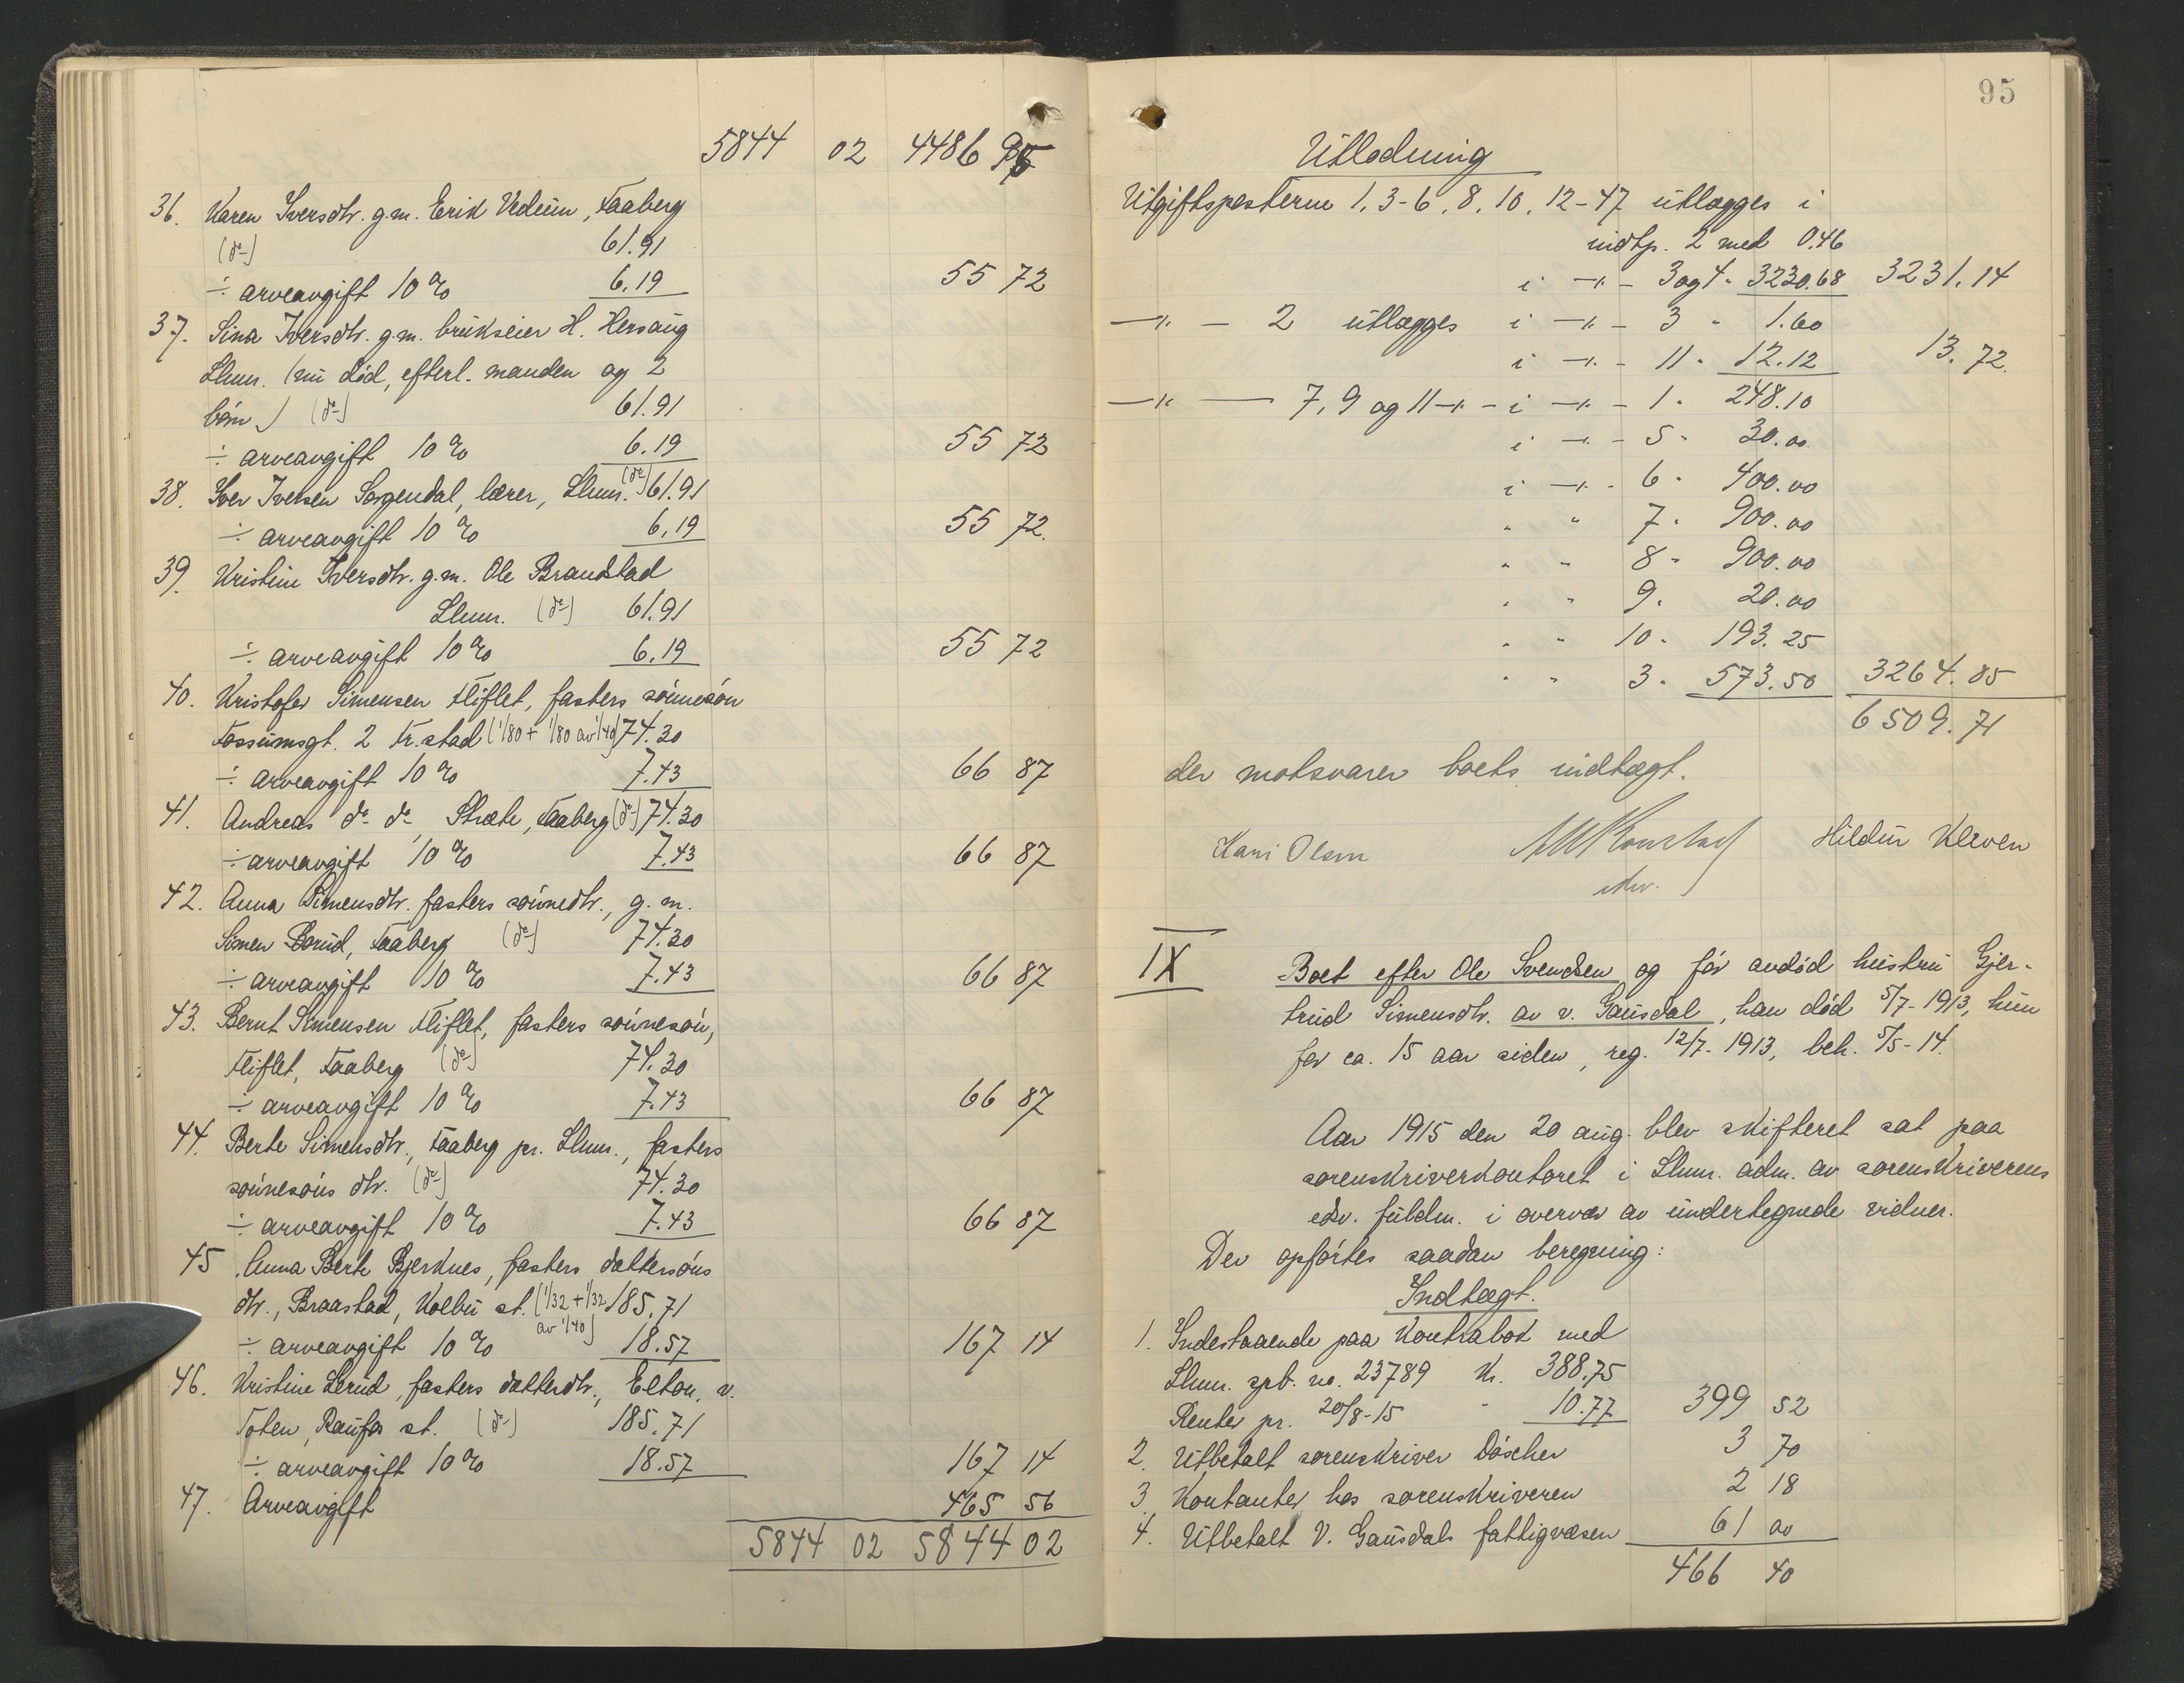 5844 02 4486 95
36. Karen Iversdtr. g.m. Erik Vedum, Faaberg
(do) 61.91
÷ arveavgift 10 % 6.19 55 72
37. Sina Iversdtr. g.m. brukseier H. Hersaug
Lhmr. (nu død, efterl. manden og 2
børn) (do) 61.91
÷ arveavgift 10 % 6.19 55 72
38. Iver Iversen Sorgendal, lærer, Lhmr. (do) 61.91
÷ arveavgift 10 % 6.19 55 72.
39. Kristine Iversdtr. g.m. Ole Brandstad
Lhmr. (do) 61.91
÷ arveavgift 10 % 6.19 55 72
40. Kristofer Simensen Fliflet, fasters sønnesøn
Fossumsgt. 2 Fr.stad (1/80 + 1/80 av 1/40) 74.30
÷ arveavgift 10 % 7.43 66 87
41. Andreas do do, Stræte, Faaberg (do) 74.30
÷ arveavgift 10 % 7.43 66 87
42. Anna Simensdtr. fasters sønnedtr., g. m.
Simen Borud, Faaberg (do) 74.30
÷ arveavgift 10 % 7.43 66 87
43. Bernt Simensen Fliflet, fasters sønnesøn,
Fliflet, Faaberg (do) 74.30
÷ arveavgift 10 % 7.43 66 87
44. Berte Simensdtr., Faaberg pr. Lhmr., fasters
sønnesøns dtr. (do) 74.30
÷ arveavgift 10 % 7.43 66 87
45. Anna Berte Bjerknes, fasters dattersøns
dtr., Braastad, Kolbu st. (1/32 + 1/32 185.71
av 1/40)
÷ arveavgift 10 % 18.57 167 14
46. Kristine Lerud, fasters datterdtr., Elton, v.
Toten, Raufos st. (do) 185.71
÷ arveavgift 10 % 18.57 167 14
47. Arveavgift 465 56
5844 02 5844 02
95
Utlodning
Utgiftsposterne 1, 3-6, 8, 10, 12-47 utlægges i
indtp. 2 med 0.46
i -"- - 3 og 4 " 3230.68 3231.14
-"- - 2 utlægges i -"- - 3 " 1.60
i -"- - 11 " 12.12 13.72.
-"- - 7, 9 og 11 -"- - i -"- - 1 " 248.10
i -"- - 5 " 30.00
i -"- - 6 " 400.00
" " 7 " 900.00
" " 8 " 900.00
" " 9 " 20.00
" " 10 " 193.25
" " 3 " 573.50 3264.85
6509.71
der motsvarer boets indtægt.
Kari Olsen Hildur Kleven
edsv.
IX Boet efter Ole Svendsen og før avdød hustru Gjer-
trud Simensdtr. av v. Gausdal, han død 5/7-1913, hun
for ca. 15 aar siden, reg. 12/7-1913, beh. 5/5-14.
Aar 1915 den 20 aug. blev skifteret sat paa
sorenskriverkontoret i Lhmr. adm. av sorenskriverens
edsv. fuldm. i overvær av undertegnede vidner.
Der opførtes saadan beregning:
Indtægt.
1. Indestaaende paa Kontrabok med
Lhmr. spb. no. 23789 Kr. 388.75
Renter pr. 20/8-15 " 10.77 399 52
2. Utbetalt sorenskriver Döscher 3 70
3 Kontanter hos sorenskriveren 2 18
4. Utbetalt V. Gausdals fattigvæsen 61 00
466 40